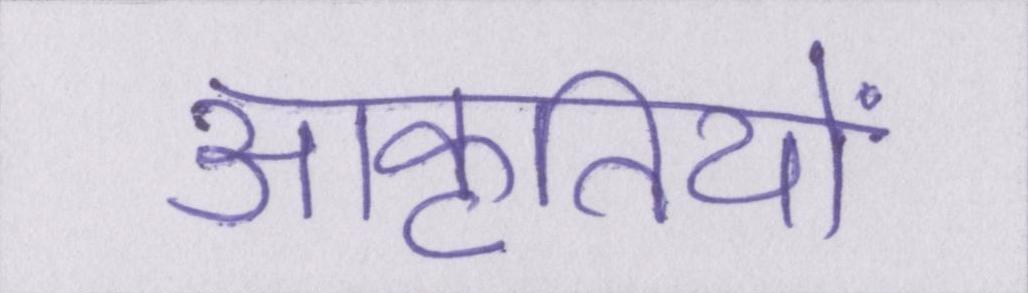 आकृतियों